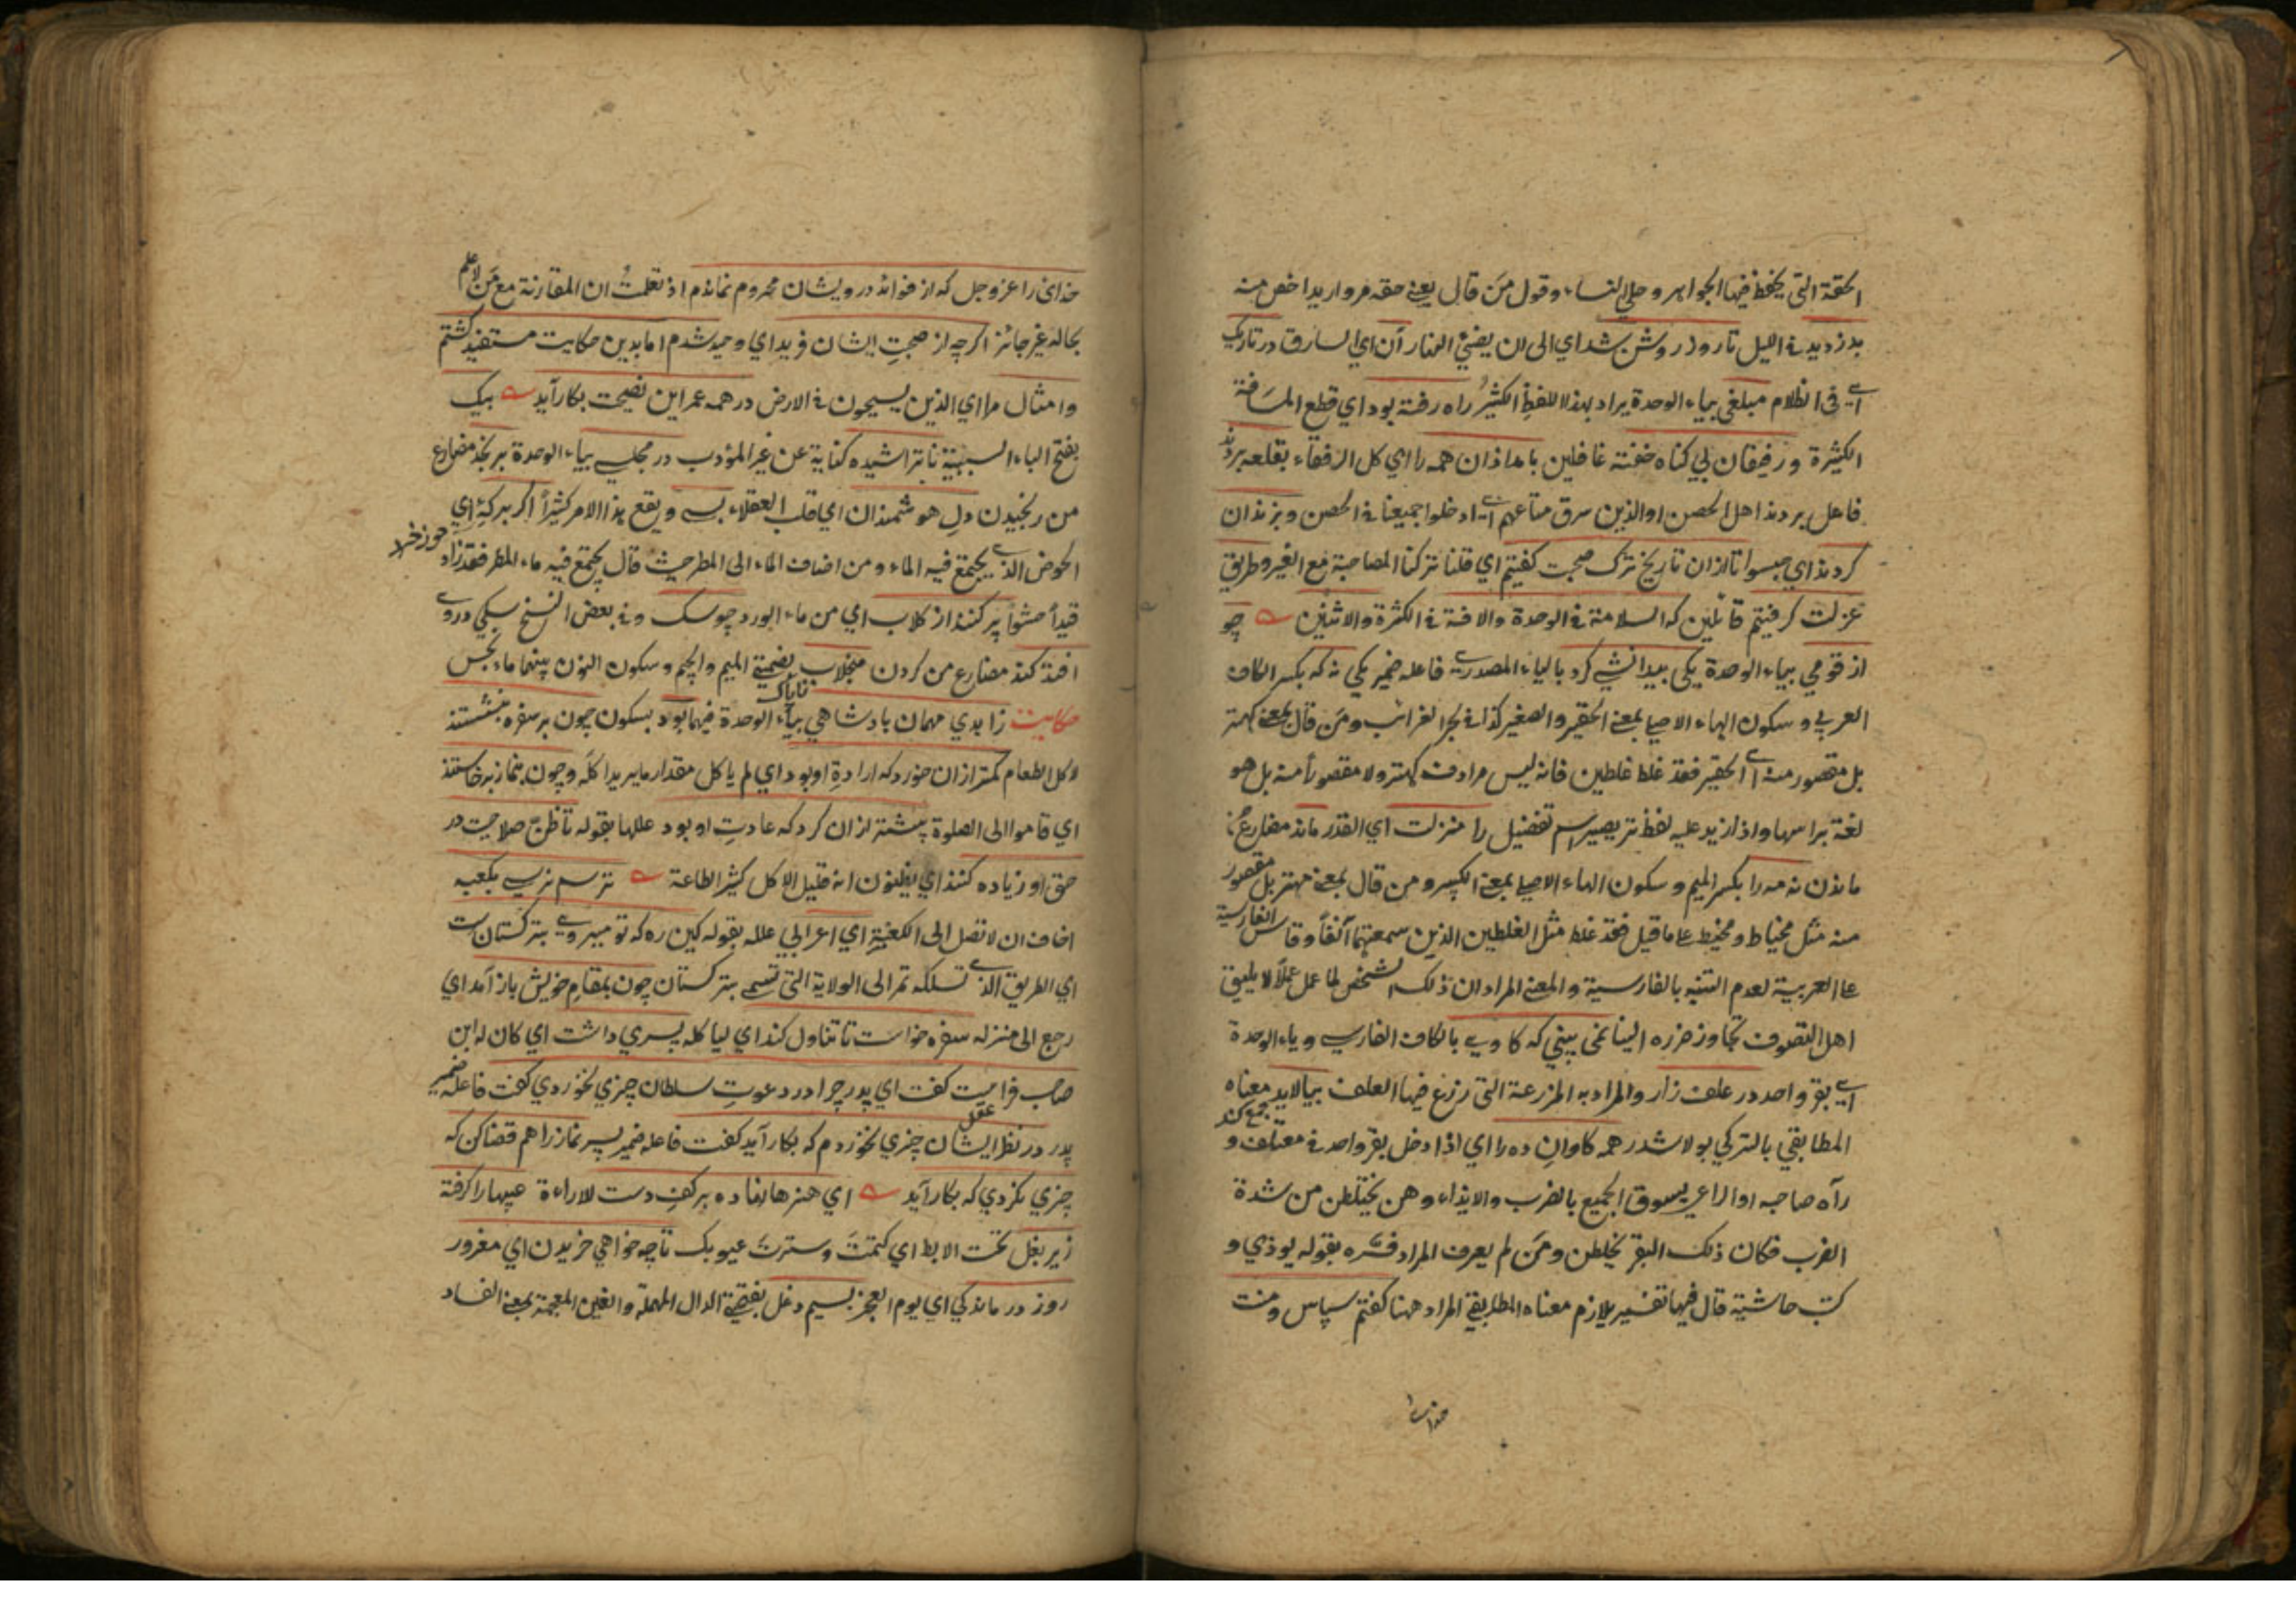 الحقة التي يحفظ فيها الجواهر وحلي النساء وقول من قال يعني حقه مرواريد اخص منه
بدزديد في الليل تا روز روشن شد اي الى ان يضيء النهار آن اي السارق در تاريك
اي في الظلام مبلغي بياء الوحدة يراد بهذا اللفظ الكثير راه رفته بود اي قطع المسافة
الكثيرة ورفيقان بي كناه خفته غافلين بامدادان همه را اي كل الرفقاء بقلعه بردند
فاعل بردند اهل الحصن او الذين سرق متاعهم اي ادخلوا جميعنا في الحصن وبزندان
كردند اي حبسوا تا ازان تاريخ ترك صحبت كفتيم اي قلنا تركنا المصاحبة مع الغير وطريق
عزلت كرفتيم قائلين كه السلامة في الوحدة والافة في الكثرة والاثنين چو
از قومي بياء الوحدة يكى بيدانشي كرد بالياء المصدرية فاعله ضمير يكي نه كه بكسر الكاف
العربي وسكون الهاء الاصلي بمعنى الحقير والصغير كذا في بحر الغرائب ومن قال بمعنى كهتر
بل مقصور منه اي الحقير فقد غلط غلطين فانه ليس مرادف كهتر ولا مقصورا منه بل هو
لغة براسها واذا زيد عليه لفظ تر يصير اسم تفضيل را منزلت اي القدر ماند مضارع من
ماندن نه مه را بكسر الميم وسكون الهاء الاصلي بمعنى الكبير ومن قال بمعنى مهتر بل مقصور
منه مثل مخياط ومخيط على ما قيل فقد غلط مثل الغلطين الذين سمعتهما آنفا وقاس الفارسية
على العربية لعدم التنبه بالفارسية والمعنى المراد ان ذلك الشخص لما عمل عملا لا يليق
اهل التصوف تجاوز ضرره الينا نمى بيني كه كاوي بالكاف الفارسي وياء الوحدة
اي بقر واحد در علف زار والمراد به المزرعة التي زرع فيها العلف بيالايد معناه
المطابقي بالتركي بولاشدر همه كاوان ده را اي اذا دخل بقر واحد في معتلف و جمع كند
رآه صاحبه او الراعي يسوق الجميع بالضرب والايذاء وهن يختلطن من شدة
الضرب فكان ذلك البقر يخلطن ومن لم يعرف المراد فسره بقوله يوذي و
كتب حاشية قال فيها تفسير يلازم معناه المطابقي المراد ههنا كفتم سپاس ومنت
خدايرا
خداى را عز وجل كه از فوائد درويشان محروم نماندم اذ تعلمت ان المقارنة مع من لا علم
بحاله غير جائز اكرچه از صحبت ايشان فريد اي وحيد شدم اما بدين حكايت مستفيد كشتم
وامثال مرا اي الذين يسيحون في الارض در همه عمر اين نصيحت بكار آيد بيك
بفتح الباء السببية ناتراشيده كناية عن غير المؤدب در مجلسي بياء الوحدة برنجد مضارع
من رنجيدن دل هوشمندان اي قلب العقلاء بسي ويقع هذا الامر كثيرا اكر بركه اي
الحوض الذي يجتمع فيه الماء ومن اضاف الماء الى المطر حيث قال يجتمع فيه ماء المطر فقد زاد
قيدا حشوا پر كنند از كلاب اي من ماء الورد چو سك وفي بعض النسخ سكي دروي
افتد كند مضارع من كردن منجلاب بضمتي الميم والجيم وسكون النون بينهما ماء نجس
حكايت زاهدي مهمان پادشاهي بياء الوحدة فيهما بود بسكون چون بر سفره بنشستند
لاكل الطعام كمتر ازان خورد كه ارادة او بود اي لم ياكل مقدار ما يريد اكله وچون بنماز برخاستند
اي قاموا الى الصلوة بيشتر ازان كرد كه عادت او بود عللها بقوله تا ظن صلاحيت در
حق او زياده كنند اي يظنون انه قليل الاكل كثير الطاعة ترسم نرسي بكعبه
اخاف ان لا تصل الى الكعبة اي اعرابي علله بقوله كين ره كه تو ميروي بتركستان ست
اي الطريق الذي تسلكه تمر الى الولاية التي تسمى بتركستان چون بمقام خويش باز آمد اي
رجع الى منزله سفره خواست تا تناول كند اي لياكله پسري داشت اي كان له ابن
صاحب فراست كفت اي پدر چرا در دعوت سلطان چيزي نخوردي كفت فاعله ضمير
پدر در نظر ايشان چيزي نخوردم كه بكار آيد كفت فاعله ضمير پسر نماز را هم قضا كن كه
چيزي نكردي كه بكار آيد اي هنرها نهاده بر كف دست للاراءة عيبها را كرفته
زير بغل تحت الابط اي كتمت وسترت عيوبك تا چه خواهي خريدن اي مغرور
روز درماندكي اي يوم العجز بسيم دغل بفتحتي الدال المهملة والغين المعجمة بمعنى الفساد